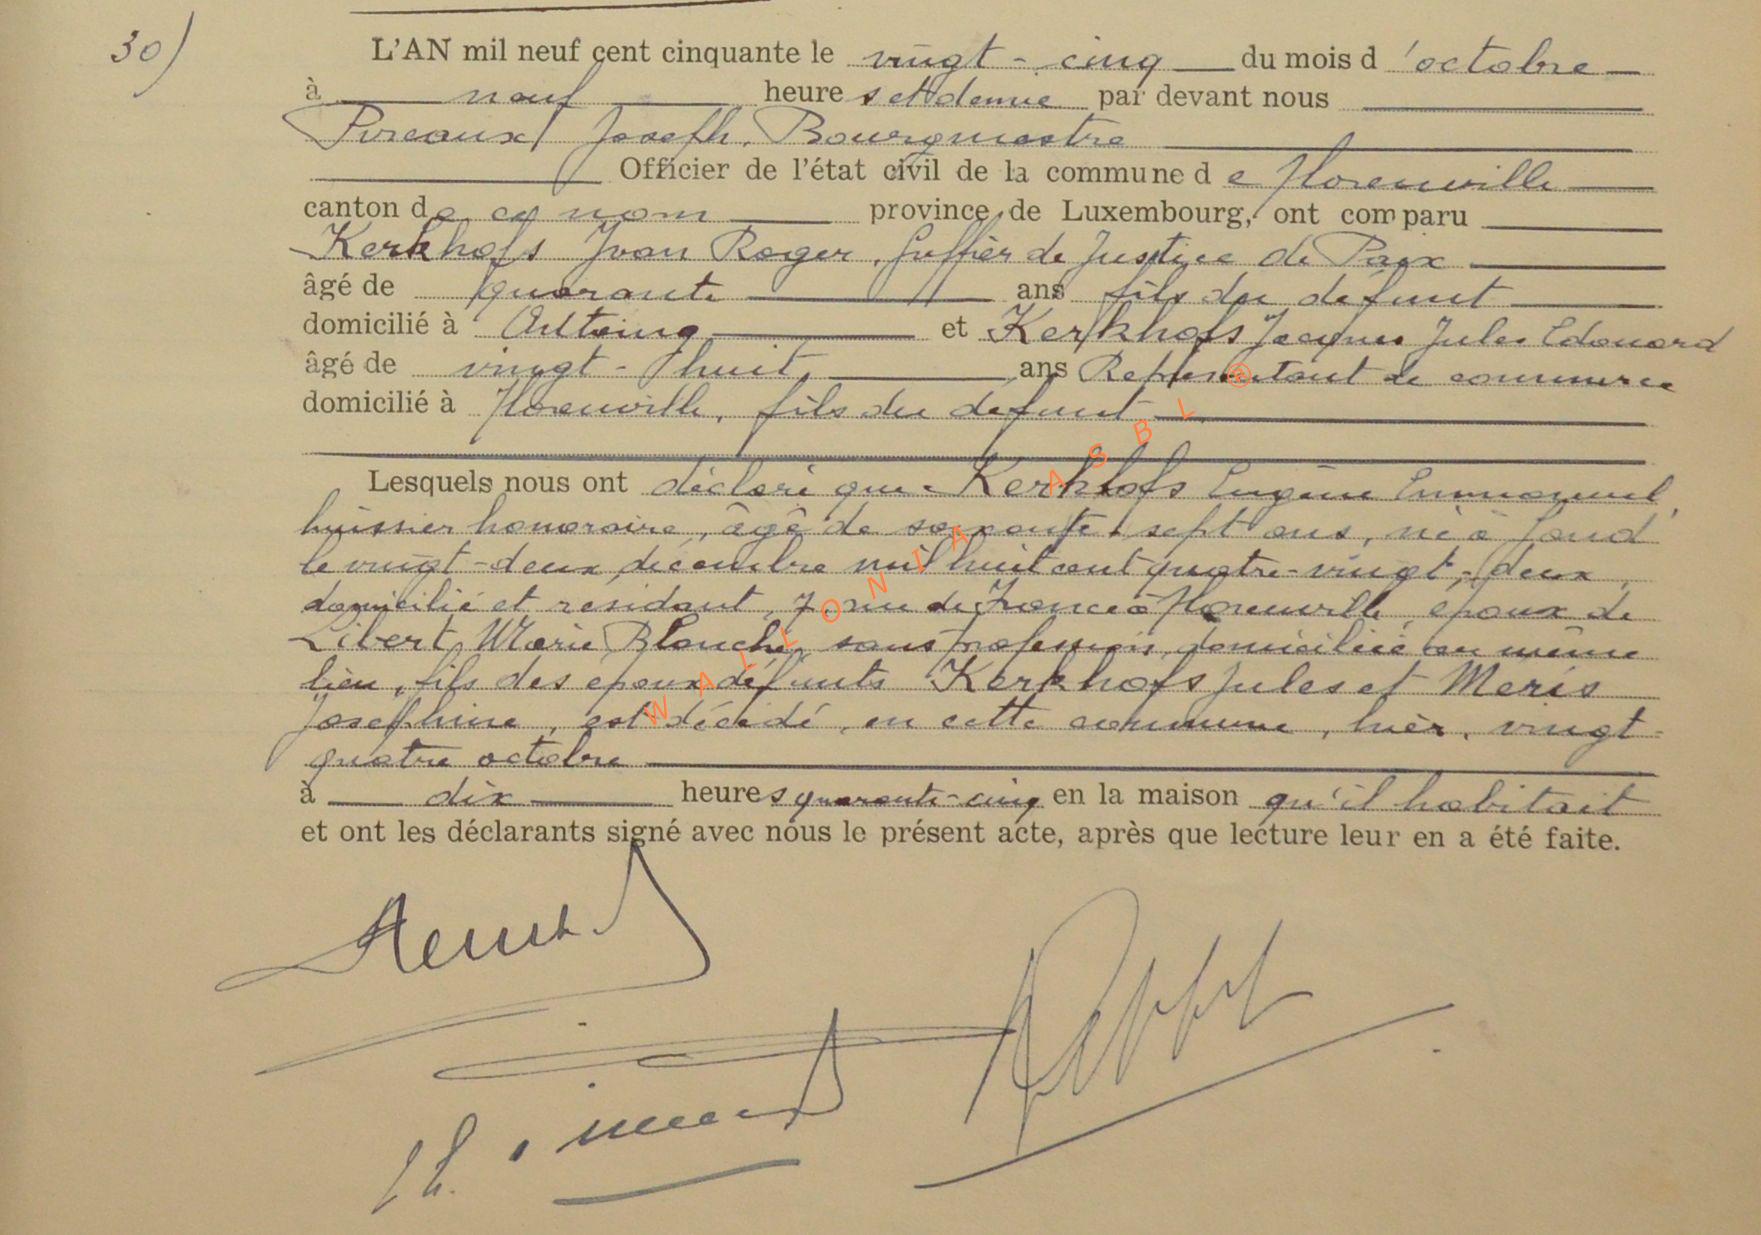 30)
L'AN mil neuf cent cinquante le vingt-cinq du mois d'octobre
à neuf heures et demie par devant nous
Pireaux Joseph, Bourgmestre
Officier de l'état civil de la commune de Florenville
canton de ce nom province de Luxembourg, ont comparu
Kerkhofs Yvan Roger, Greffier de Justice de Paix
âgé de quarante ans fils du défunt
domicilié à Antoing et Kerkhofs Jacques Jules Edouard
âgé de vingt-huit ans Représentant de commerce
domicilié à Florenville, fils du défunt
Lesquels nous ont déclaré que Kerkhofs Eugène Emmanuel,
huissier honoraire, âgé de soixante sept ans, né à Gand
le vingt-deux décembre mil huit cent quatre-vingt-deux,
domicilié et résidant, 7, rue de France à Florenville, époux de
Libert Marie Blanche, sans profession, domiciliée au même
lieu, fils des époux défunts Kerkhofs Jules et Meris
Josephine, est décédé, en cette commune, hier, vingt-
quatre octobre
à dix heures quarante-cinq en la maison qu'il habitait
et ont les déclarants signé avec nous le présent acte, après que lecture leur en a été faite.
WALLONIA ASBL ®